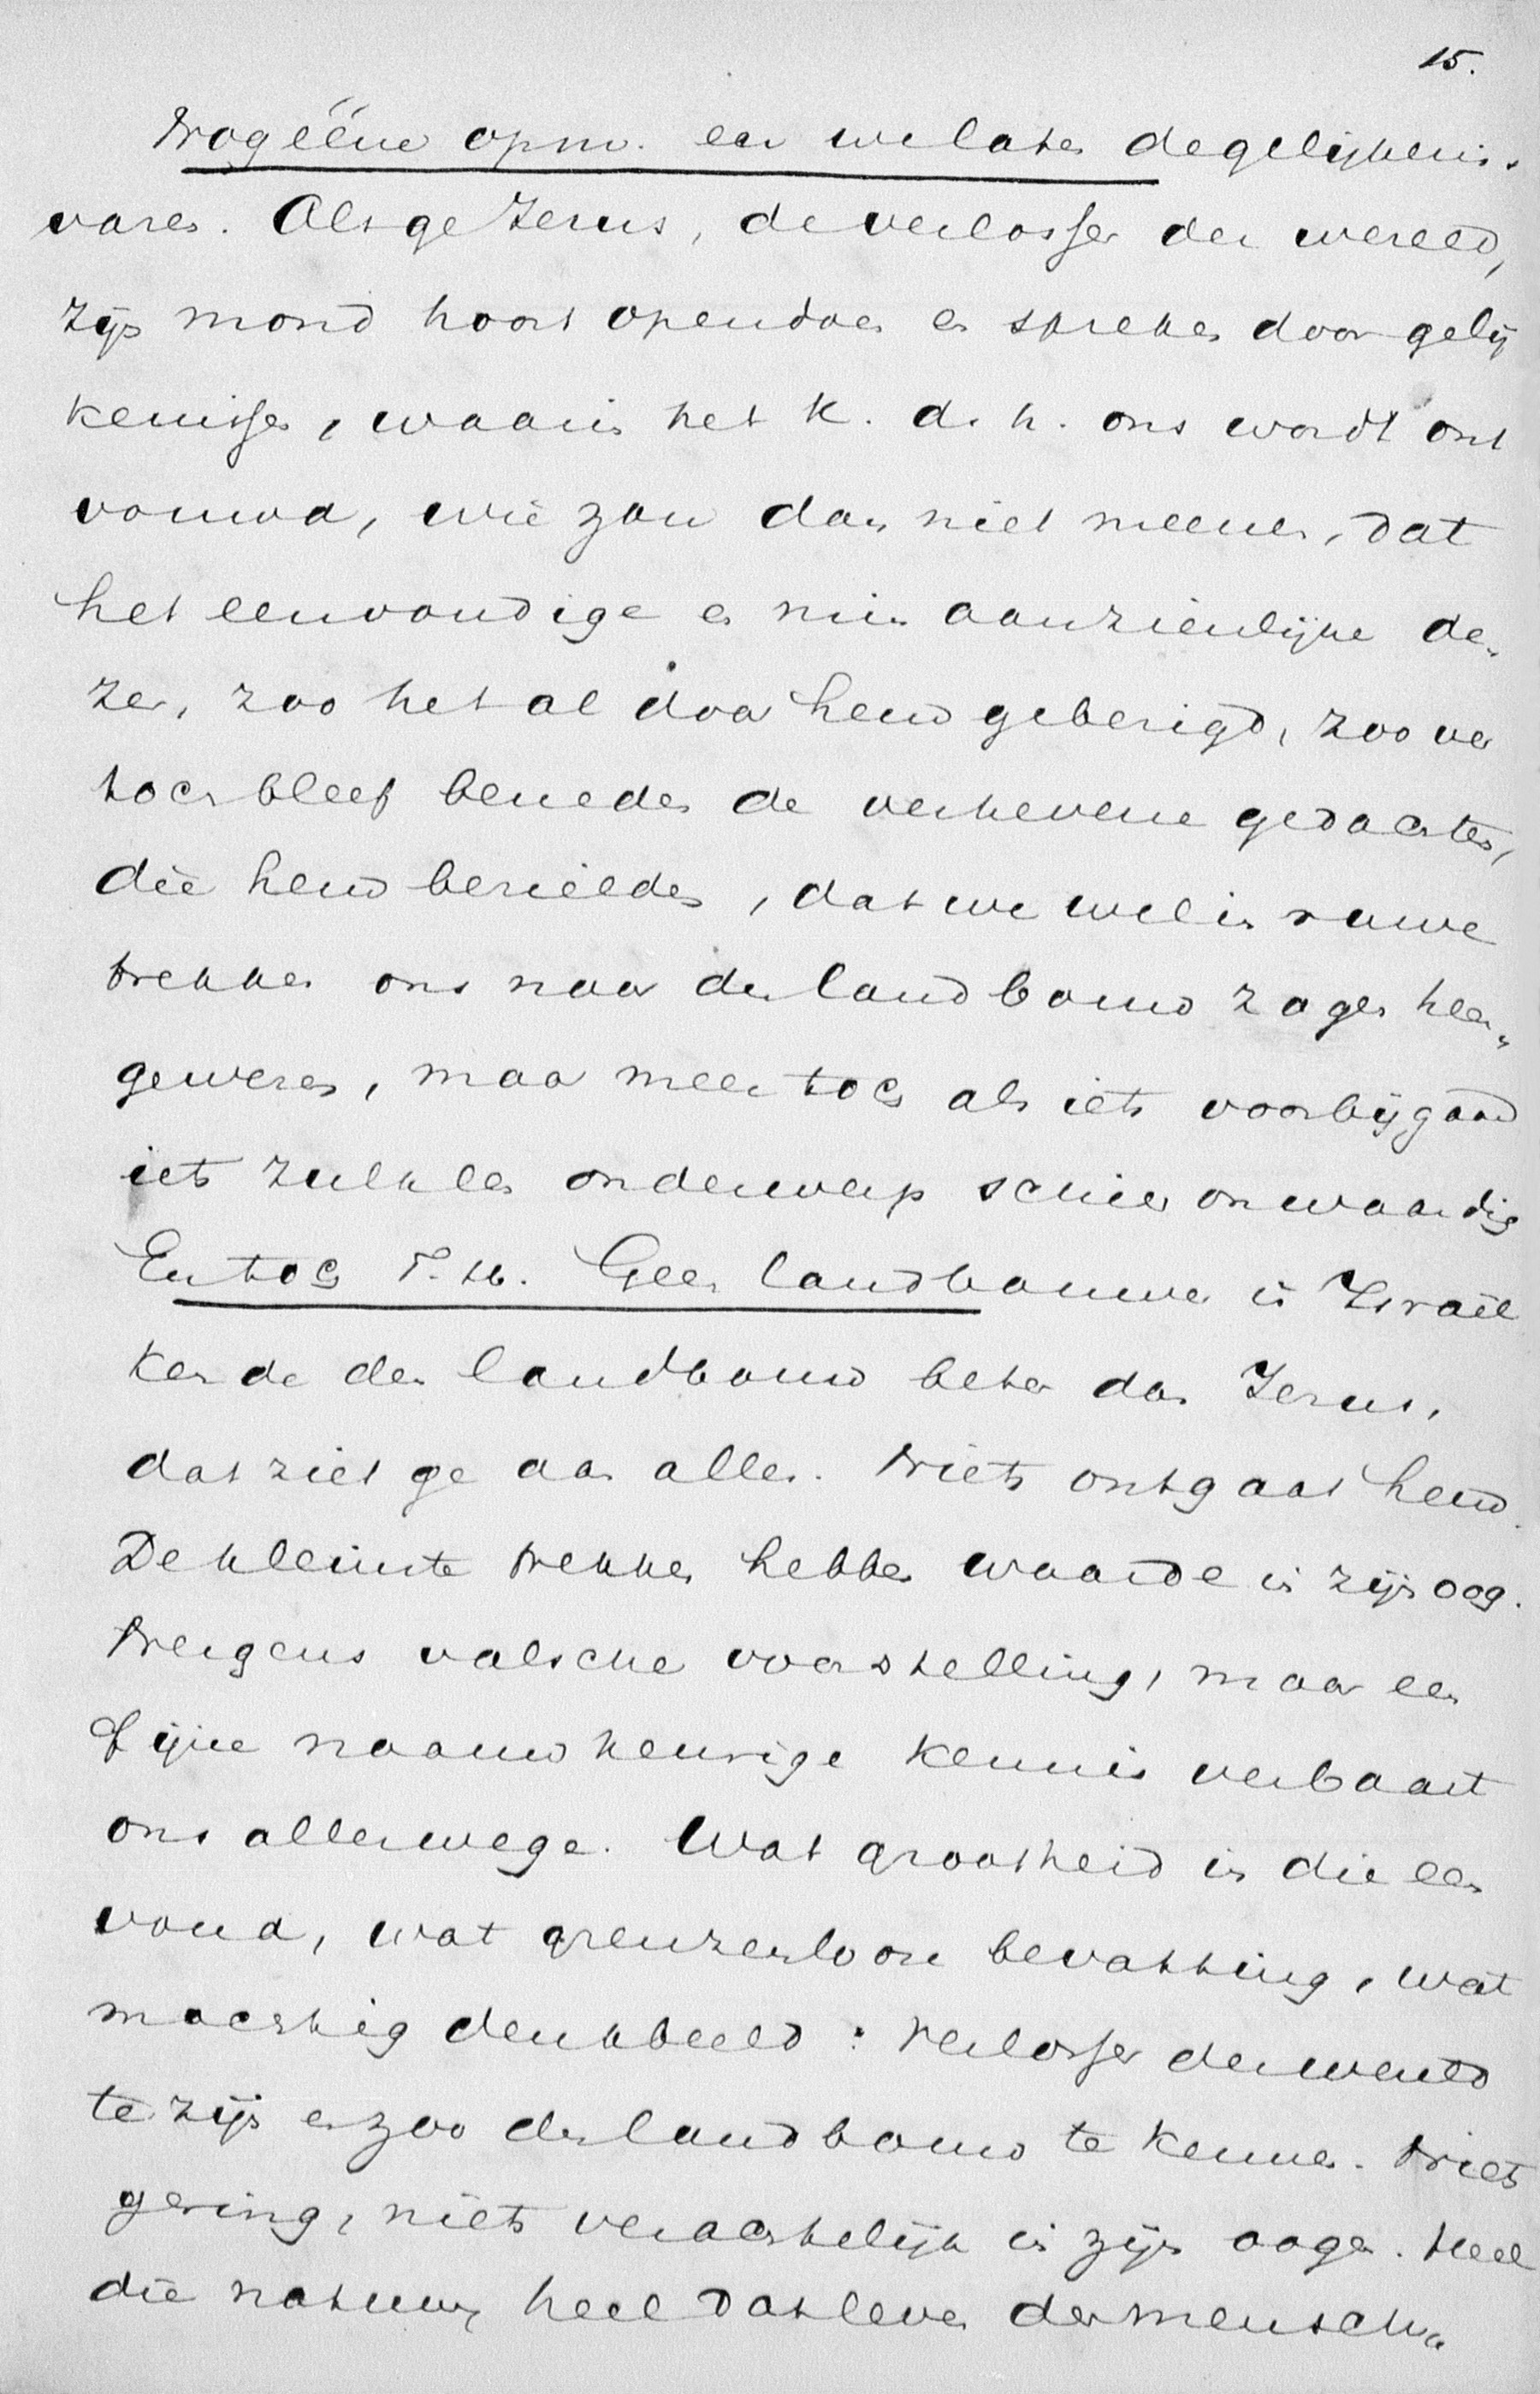 15.
Nog ééne opm. en we laten de gelijkenis.
varen. Als ge Jezus, de verlosser der wereld,
zijn mond hoort opendoen en spreken door gelij
kenissen, waarin het k. d. h. ons wordt ont
vouwd, wie zou dan niet meenen, dat
het eenvoudige en min aanzienlijke de„
zer, zoo het al door hem gebezigd, zoo ver
toch bleef beneden de verhevene gedachten,
die hem bezielden, dat we wel in ruwe
trekken ons naar den landbouw zagen heen„
gewezen, maar meer toch als iets voorbijgaand
iets zulk een onderwerp schier onwaardig
En toch T. H. Geen landbouwer in Israël
kende den landbouw beter dan Jezus,
dat ziet ge aan alles. Niets ontgaat hem.
De kleinste trekken hebben waarde in zijn oog.
Nergens valsche voorstelling, maar een
fijne naauwkeurige kennis verbaast
ons allerwege. Wat grootheid in die een
voud, wat grenzenlooze bevatting, wat
machtig denkbeeld: Verlosser der wereld
te zijn en zoo den landbouw te kennen. Niets
gering, niets verachtelijk in zijn oogen. Heel
die natuur, heel dat leven der mensch„